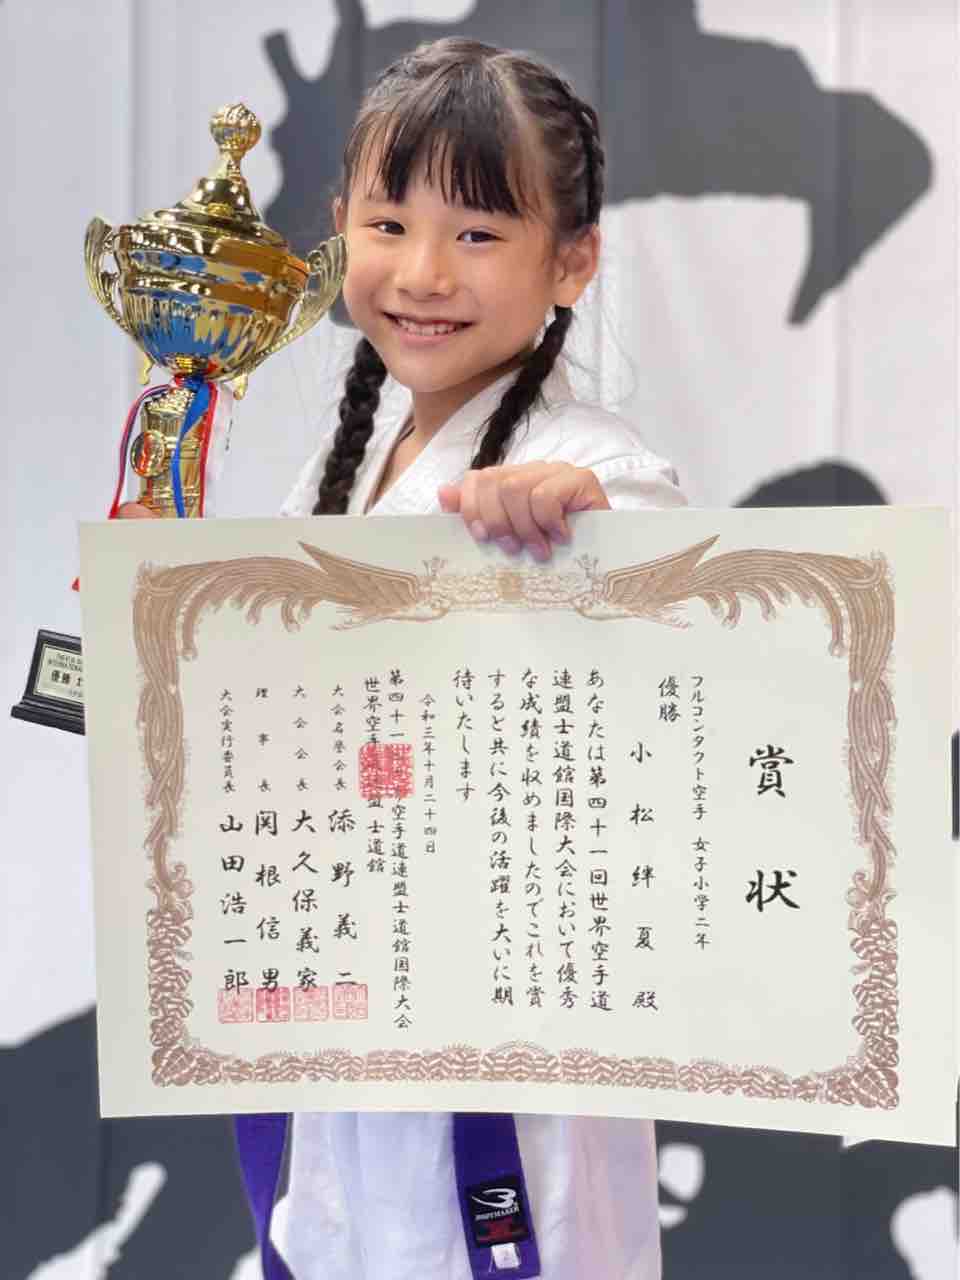 賞状
フルコンタクト空手 女子小学二年
優勝
小松絆夏 殿
あなたは第四十一回世界空手道
連盟士道館国際大会において優秀
な成績を収めましたのでこれを賞
すると共に今後の活躍を大いに期
待いたします
令和三年十月二十四日
第四十一回世界空手道連盟士道館国際大会
世界空手道連盟 士道館
大会名誉会長 添野義二
大会会長 大久保義家
理事長 関根信男
大会実行委員長 山田浩一郎
優勝
BODYMAKER